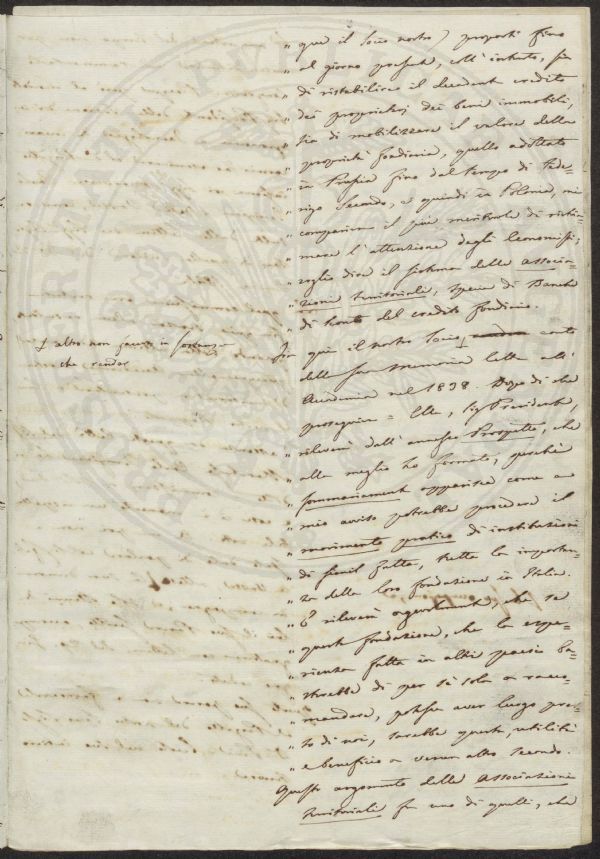 " que il Socio nostro) proposti fino
" al giorno presente, coll'intento, sia
" di ristabilire il decadente credito
" dei proprietarj dei beni immobili,
" sia di mobilizzare il valore della
" proprietà fondiaria, quello adottato
" in Prussia fino dal tempo di Fede-
" rigo Secondo, e quindi in Polonia, mi
" comparisce il più meritevole di richia-
" mare l'attenzione degli Economisti;
" voglio dire il sistema delle Associa-
" zioni territoriali, specie di Banche
" di sconto del credito fondiario.
Fin qui il nostro Socio, conto
della sua Memoria letta all'
Accademia nel 1838. Dopo di che
proseguiva = Ella, Sig. Presidente,
" rileverà dall'annesso Progetto, che
" alla meglio ho formato, perchè
" sommariamente apparisca come a
" mio avviso potrebbe procedere il
" movimento pratico di instituzioni
" di simil fatta, tutta la importan-
" za della loro fondazione in Italia.
" E rileverà agevolmente, che se
" questa fondazione, che la espe-
" rienza fatta in altri paesi ba-
" sterebbe di per sè sola a racco-
" mandare, potesse aver luogo pres-
" so di noi, sarebbe questa, utilità
" e beneficio a verun altro secondo.
Questo argomento delle Associazioni
territoriali fu uno di quelli, che
altro non facea in sostanza
che render